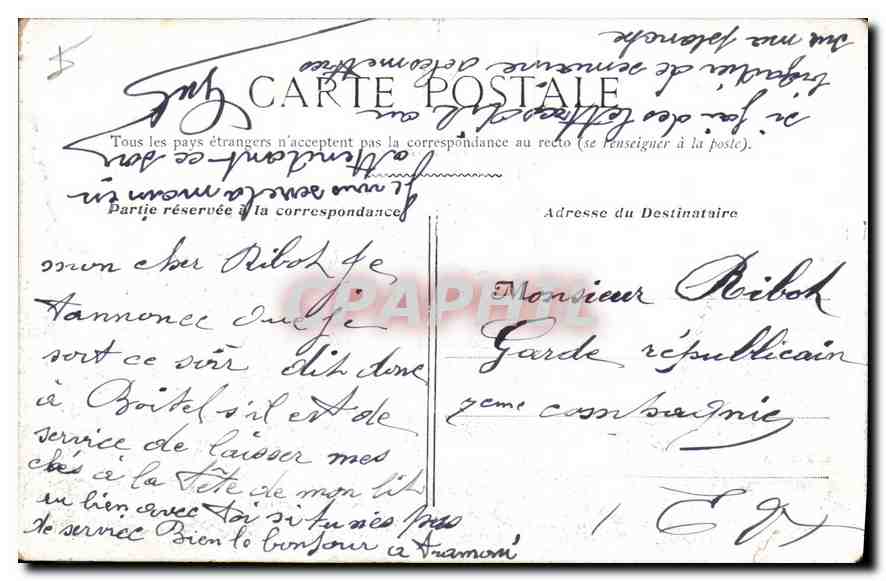 CARTE POSTALE
Tous les pays étrangers n'acceptent pas la correspondance au recto (se renseigner à la poste).
Partie réservée à la correspondance
Adresse du Destinataire
mon cher Ribot Je
tannonce que je
sort ce soir dit donc
à Boitel s'il est de
service de laisser mes
clés à la tête de mon lit
ou bien avec toi si tu nes pas
de service Bien le bonjour a Aramoni
Je vous serre la main en
attendant ce soir
si jai des lettres dit au
brigadier de semaine de les mettres
sur ma planche
Monsieur Ribot
Garde républicain
7eme compagnie
E V
CPAPHIL